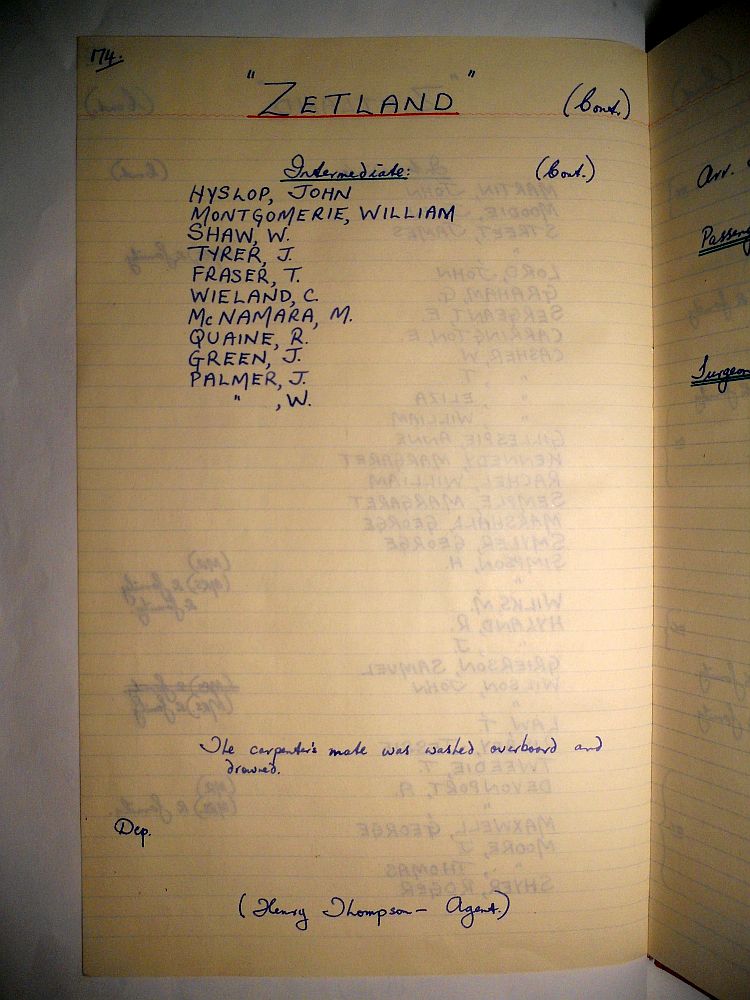 174.
"ZETLAND" (Cont.)
Intermediate: (Cont.)
HYSLOP, JOHN
MONTGOMERIE, WILLIAM
SHAW, W.
TYRER, J.
FRASER, T.
WIELAND, C.
McNAMARA, M.
QUAINE, R.
GREEN, J.
PALMER, J.
" , W.
The carpenter's mate was washed overboard and
drowned.
Dep.
(Henry Thompson - Agent.)
Arr.